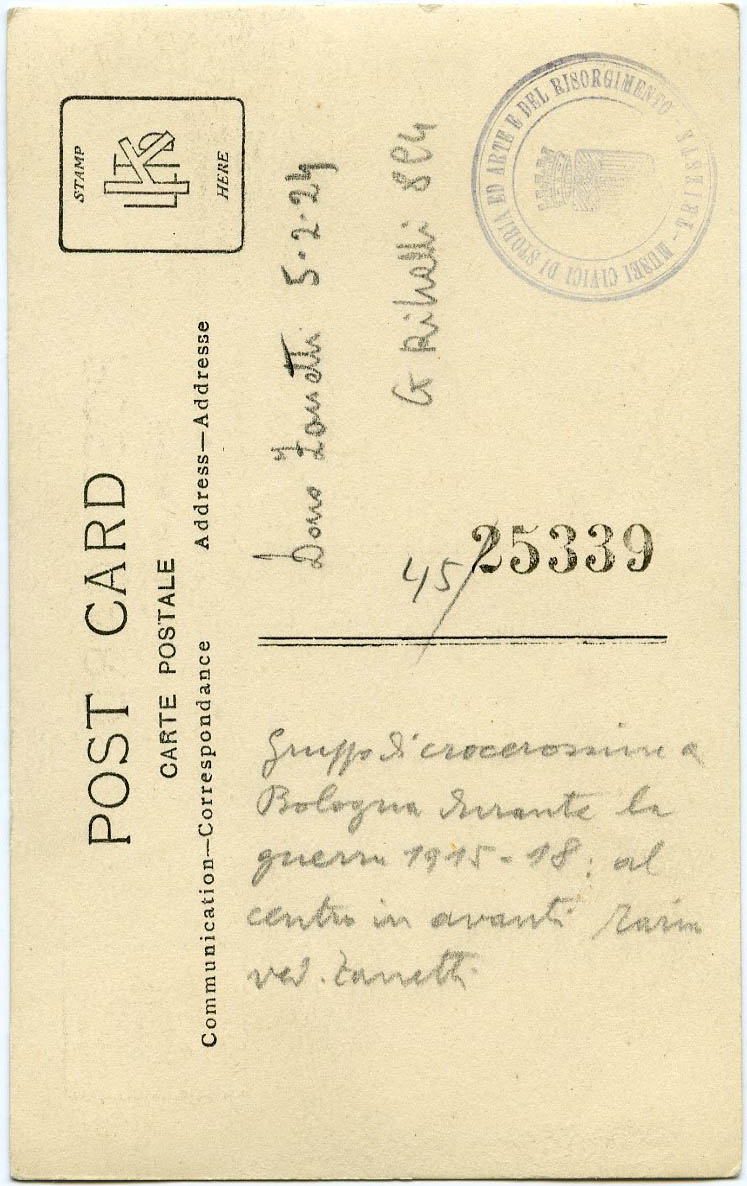 POST CARD
CARTE POSTALE
Communication—Correspondance
Address—Addresse
STAMP
HERE
Dono Zanetti 5-2-24
G
MUSEI CIVICI DI STORIA ED ARTE E DEL RISORGIMENTO - TRIESTE -
45/25339
Gruppo di crocerossine a
Bologna durante la
guerra 1915-18: al
centro in avanti
ved. Zanetti